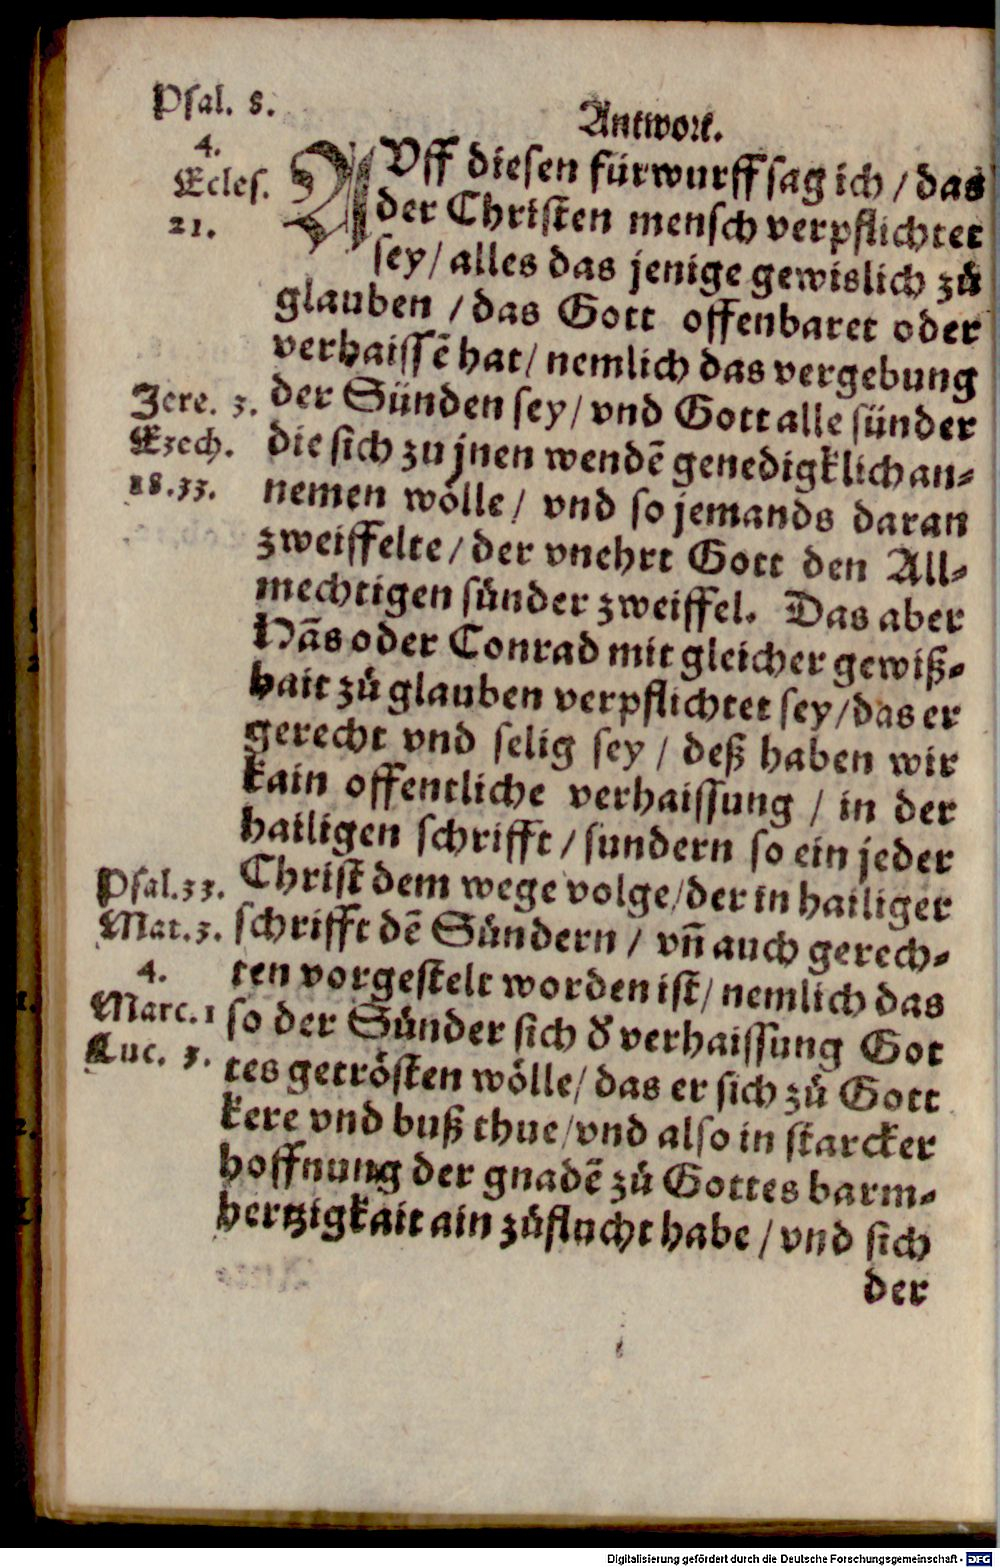 Psal. 8.
4.
Ecles.
21.
Antwort.
AUff diesen fürwurff sag ich / das
der Christen mensch verpflichtet
sey / alles das jenige gewislich zů
glauben / das Gott offenbaret oder
verhaissē hat / nemlich das vergebung
Jere. 3.
Ezech.
18.33.
der Sünden sey / vnd Gott alle sünder
die sich zu jnen wendē genedigklich an-
nemen wölle / vnd so jemands daran
zweiffelte / der vnehrt Gott den All-
mechtigen sünder zweiffel. Das aber
Hãs oder Conrad mit gleicher gewiß-
hait zů glauben verpflichtet sey / das er
gerecht vnd selig sey / deß haben wir
kain offentliche verhaissung / in der
hailigen schrifft / sundern so ein jeder
Psal.33.
Mat.3.
4.
Marc.1
Luc. 3.
Christ dem wege volge / der in hailiger
schrifft dē Sündern / vñ auch gerech-
ten vorgestelt worden ist / nemlich das
so der Sünder sich ð verhaissung Got
tes getrösten wölle / das er sich zů Gott
kere vnd buß thue / vnd also in starcker
hoffnung der gnadē zů Gottes barm-
hertzigkait ain zůflucht habe / vnd sich
der
Digitalisierung gefördert durch die Deutsche Forschungsgemeinschaft - DFG